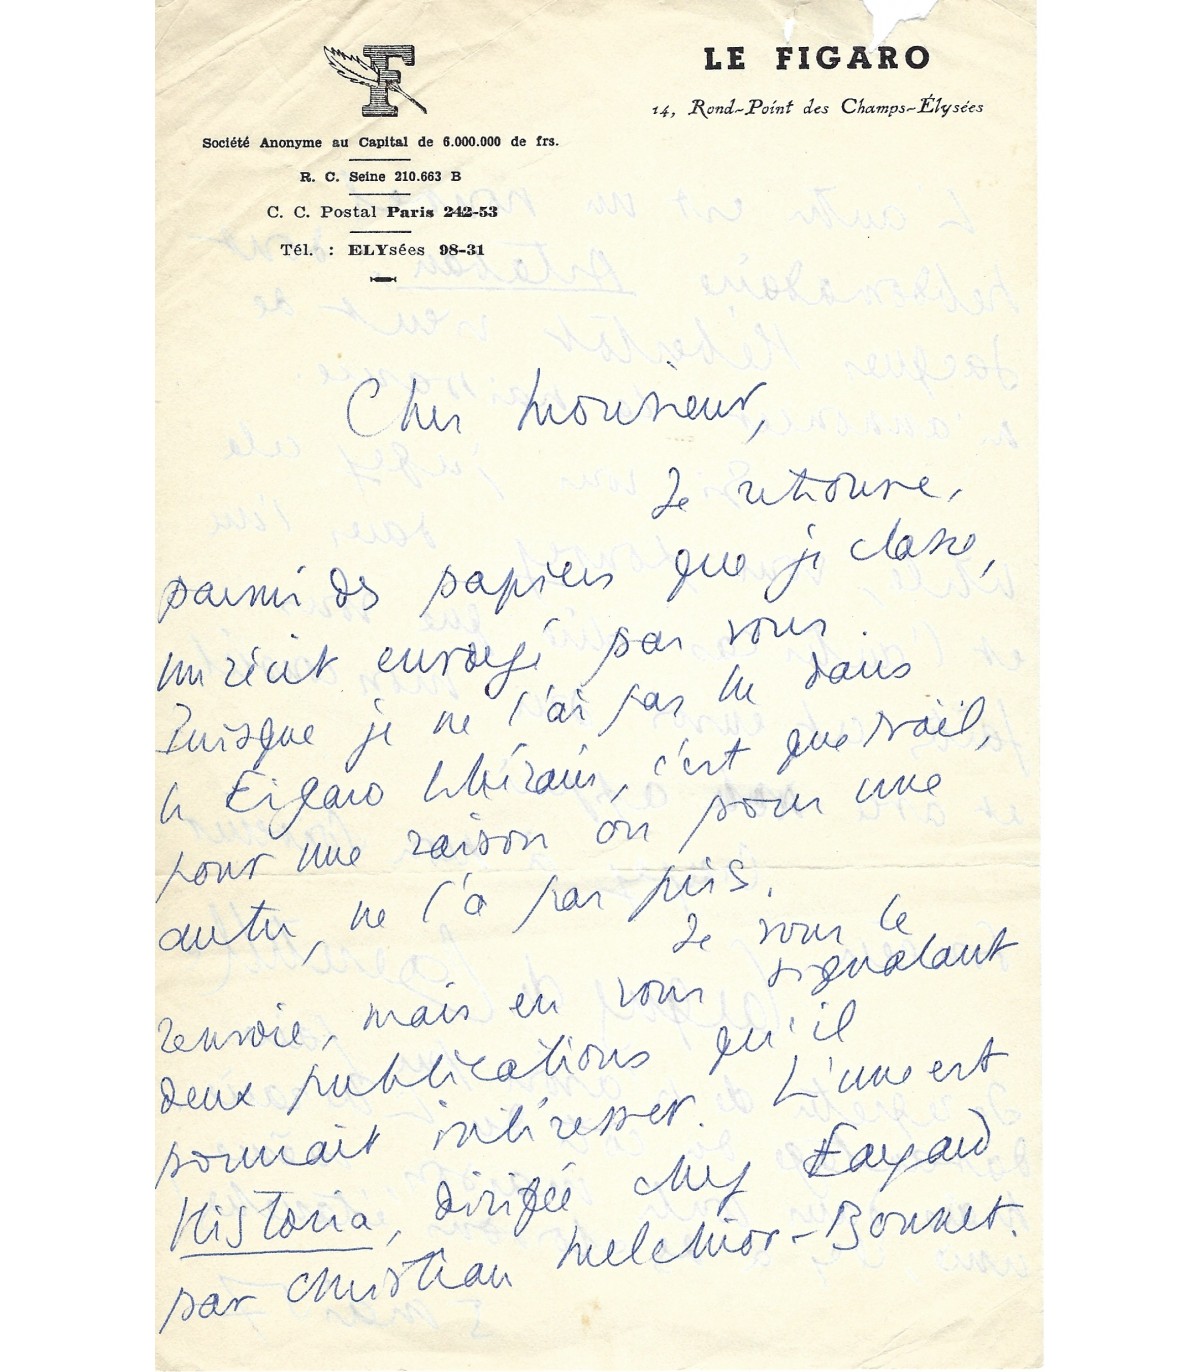 F
LE FIGARO
14, Rond-Point des Champs-Élysées
Société Anonyme au Capital de 6.000.000 de frs.
R. C. Seine 210.663 B
C. C. Postal Paris 242-53
Tél. : ELYsées 98-31
Cher Monsieur,
Je retrouve,
parmi des papiers que je classe,
un récit envoyé par vous.
Puisque je ne l'ai pas lu dans
le Figaro littéraire, c'est que Noël,
pour une raison ou pour une
autre, ne l'a pas pris.
Je vous le
renvoie, mais en vous signalant
deux publications qu'il
pourrait intéresser. L'une est
Historia, dirigée chez Fayard
par Christian Melchior-Bonnet.